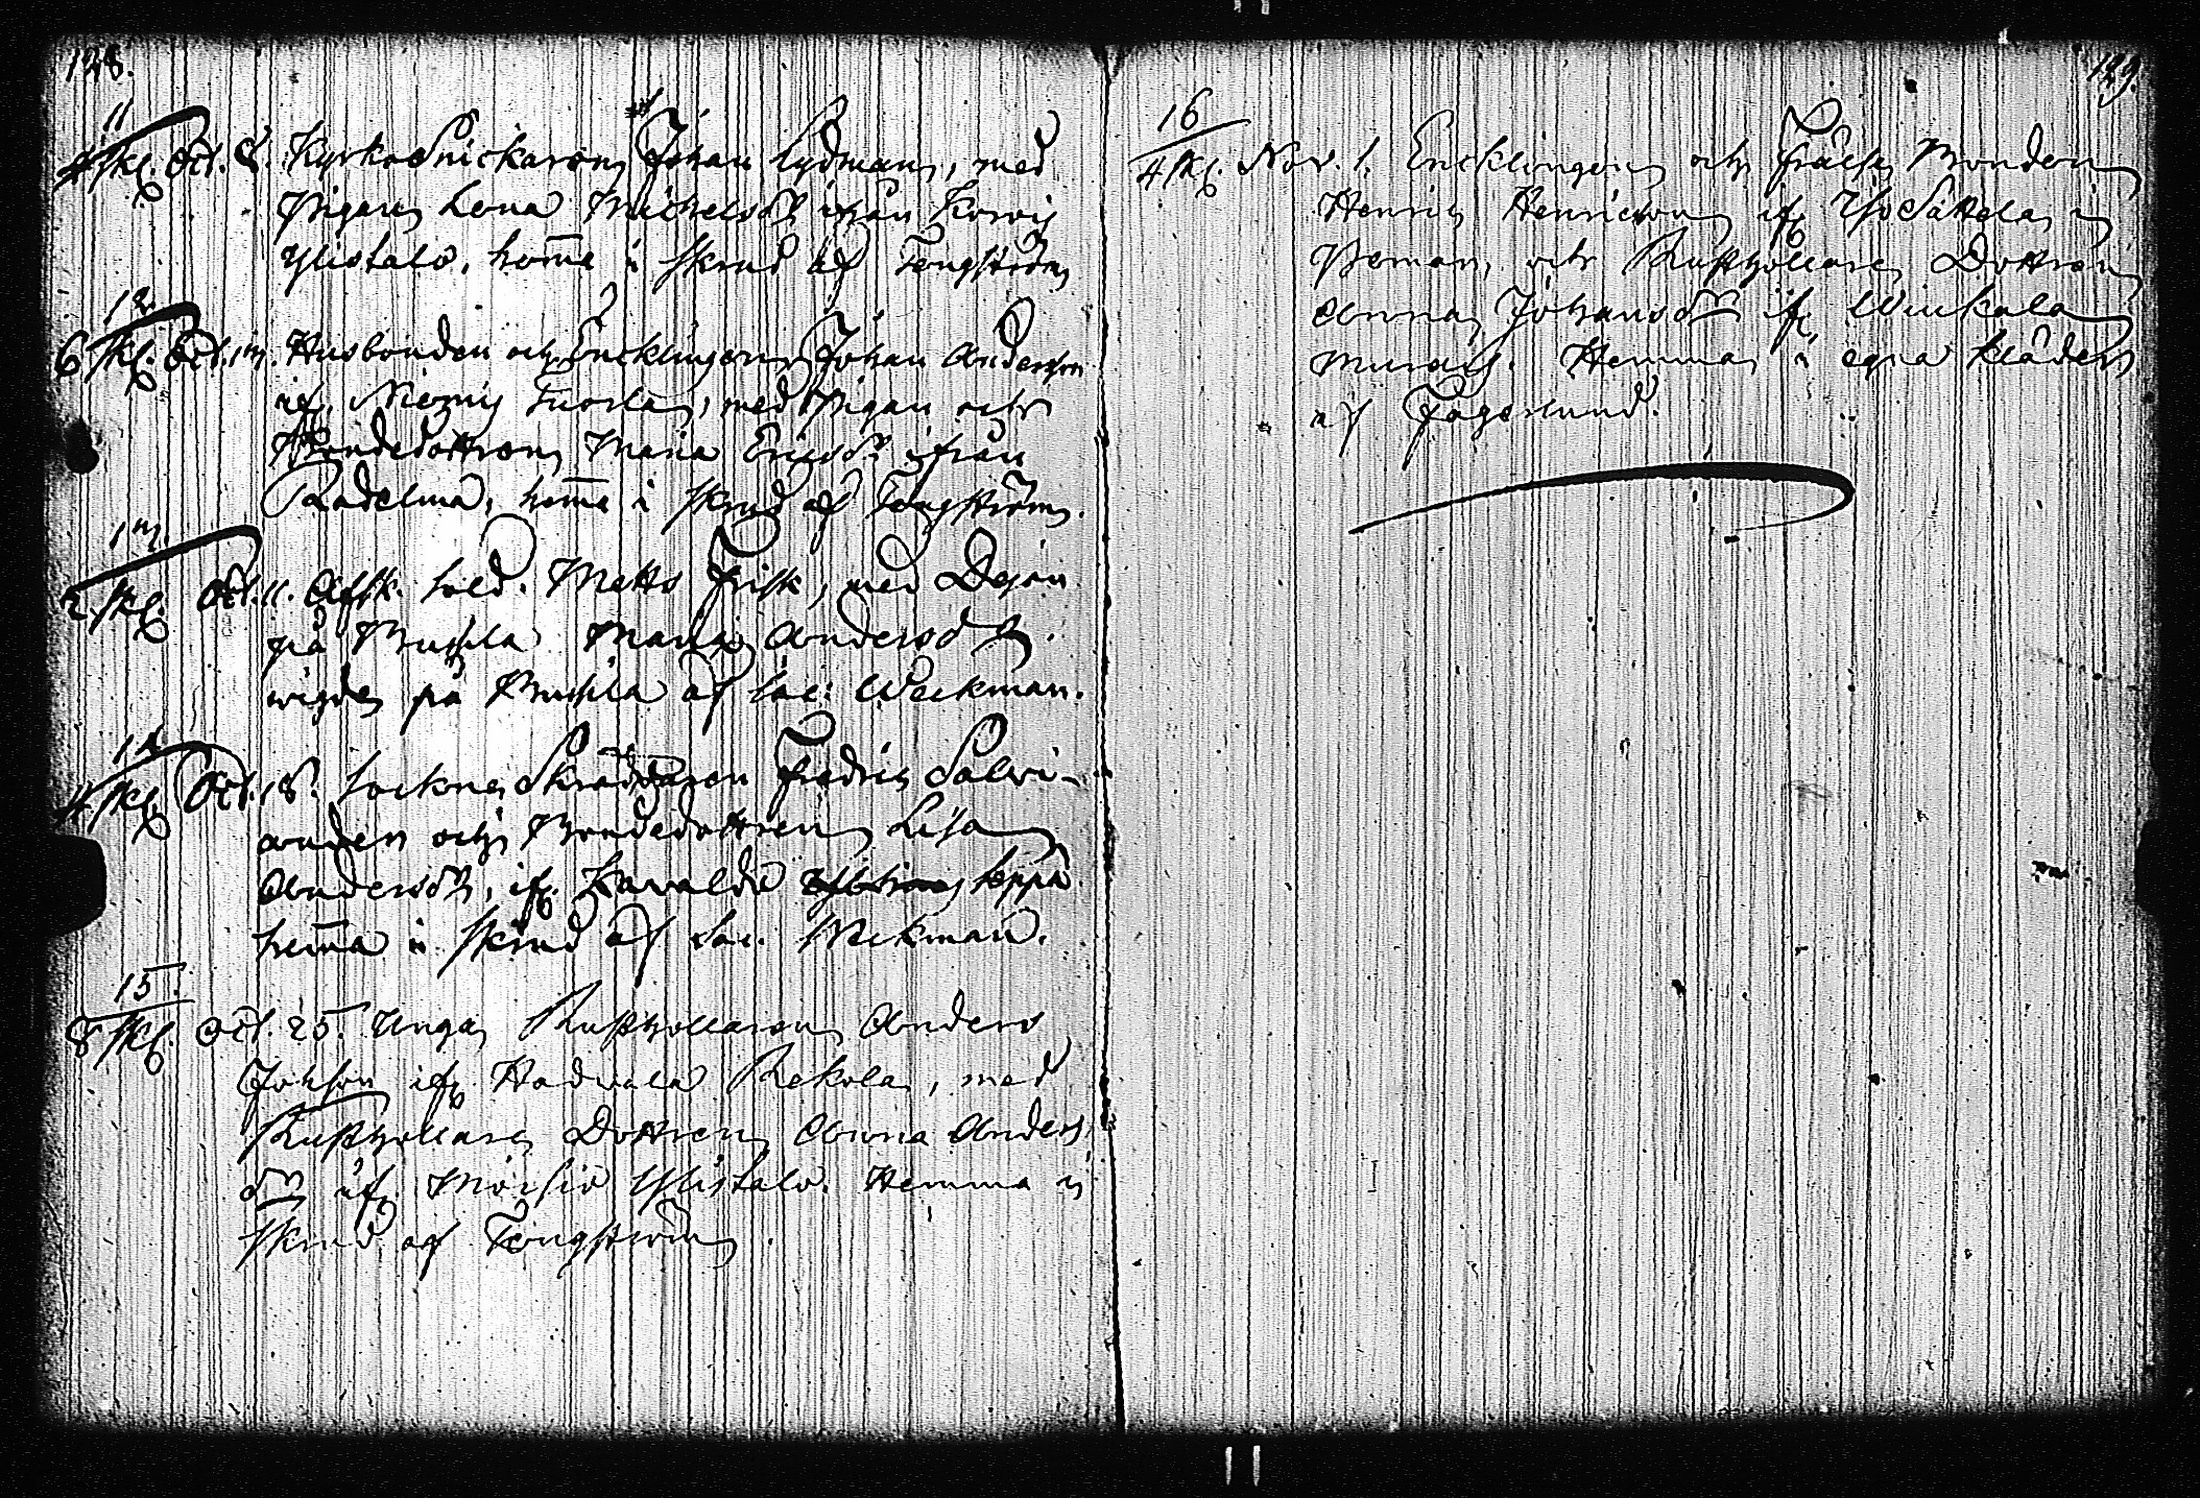 128.
11
4 skl. Oct. 8. Kyrko Snickaren Johan Lydman, med
Pigan Lena Michelsdr ifrån Korvis
Ylistalo, hem̅a i skrud af Tengström
12
6 skl. Oct. Husbonden och Encklingen Johan Andersson
if. Niemis med Pigan och
Bondedottren Maria Ericsdr ifrån
Radelma, hem̅a i skrud af Tengström.
13
2 skl. Oct. 11. Afsk. Sold. Matts Frisk, med Dejan
på Maria Andersdr.
wigde på af Sac: Weckman.
14
4 skl. Oct. 18. Sockne Skräddaren Fredric Salvi-
ander och Bondedottren Lisa
Andersdr, if. Seppä
hem̅a i skrud af Sac. Wekman.
15.
8 skl. Oct. 25. Unga Rusthollaren Anders
Johsson if. Rekola, med
Rusthollare Dottren Anna Anders
dr if. Ylistalo. Hemma i
skrud af Tengström.
129.
16
4 skl. Nov. 1. Encklingen och Frälse Bonden
Henric Henricsson if. Iso Sattela i
Pemar, och Rusthollare Dottren
Anna Johansdr if.
Hemma i egna kläder
af Fagerlund.